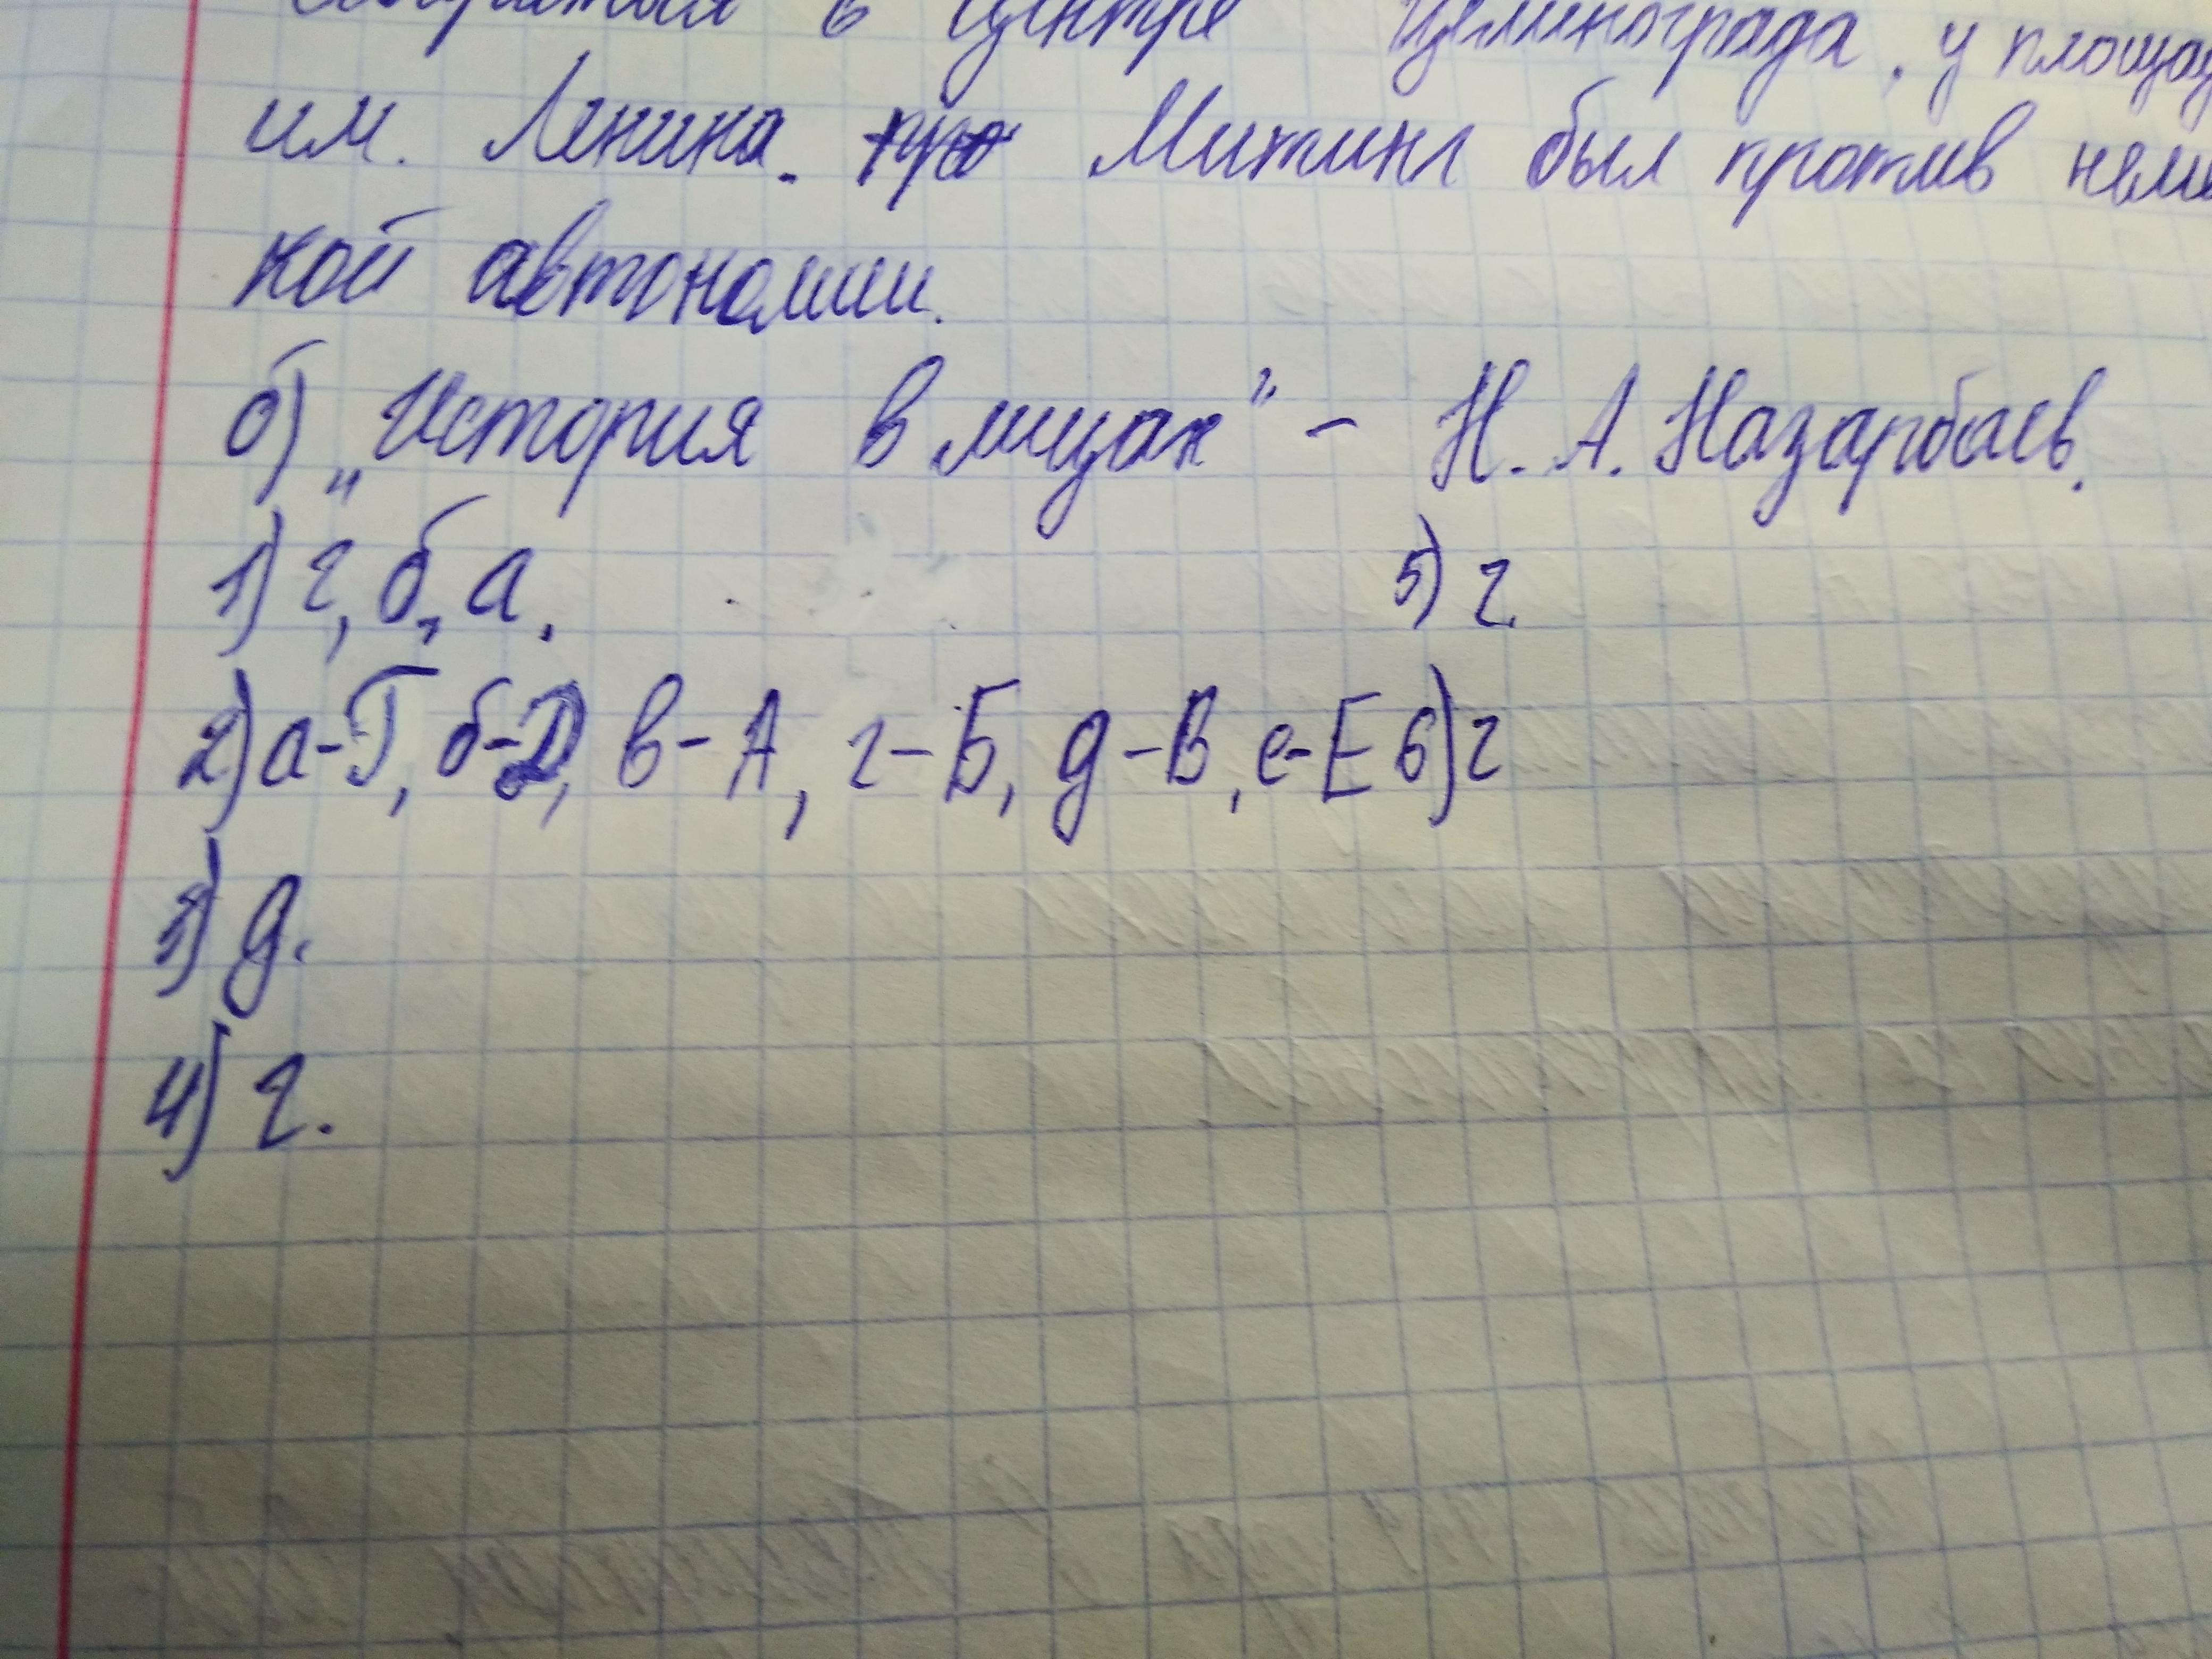 в центре Целинограда, у площад
им. Ленина. Митинг был против неме
кой автономии.
б) „История в лицах" - Н. А. Назарбаев.
1) г, б, а. 5) г.
2) а-Г, б-Д, в-А, г-Б, д-В, е-Е 6) г
3) д.
4) г.